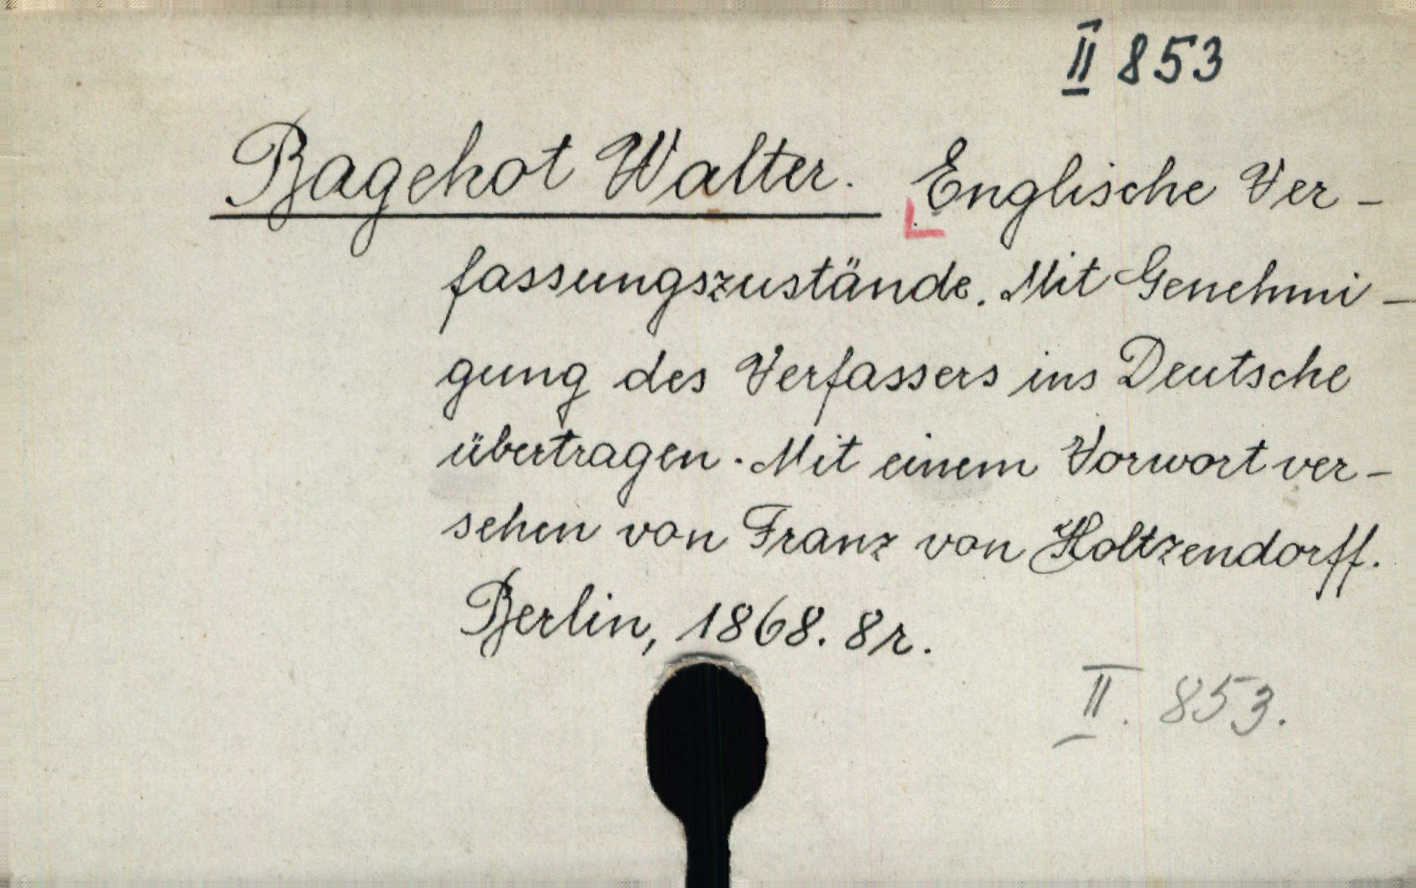 II 853
Bagehot Walter. Englische Ver-
fassungszustände. Mit Genehmi-
gung des Verfassers ins Deutsche
übertragen. Mit einem Vorwort ver-
sehen von Franz von Holtzendorff.
Berlin, 1868. 8r.
II. 853.